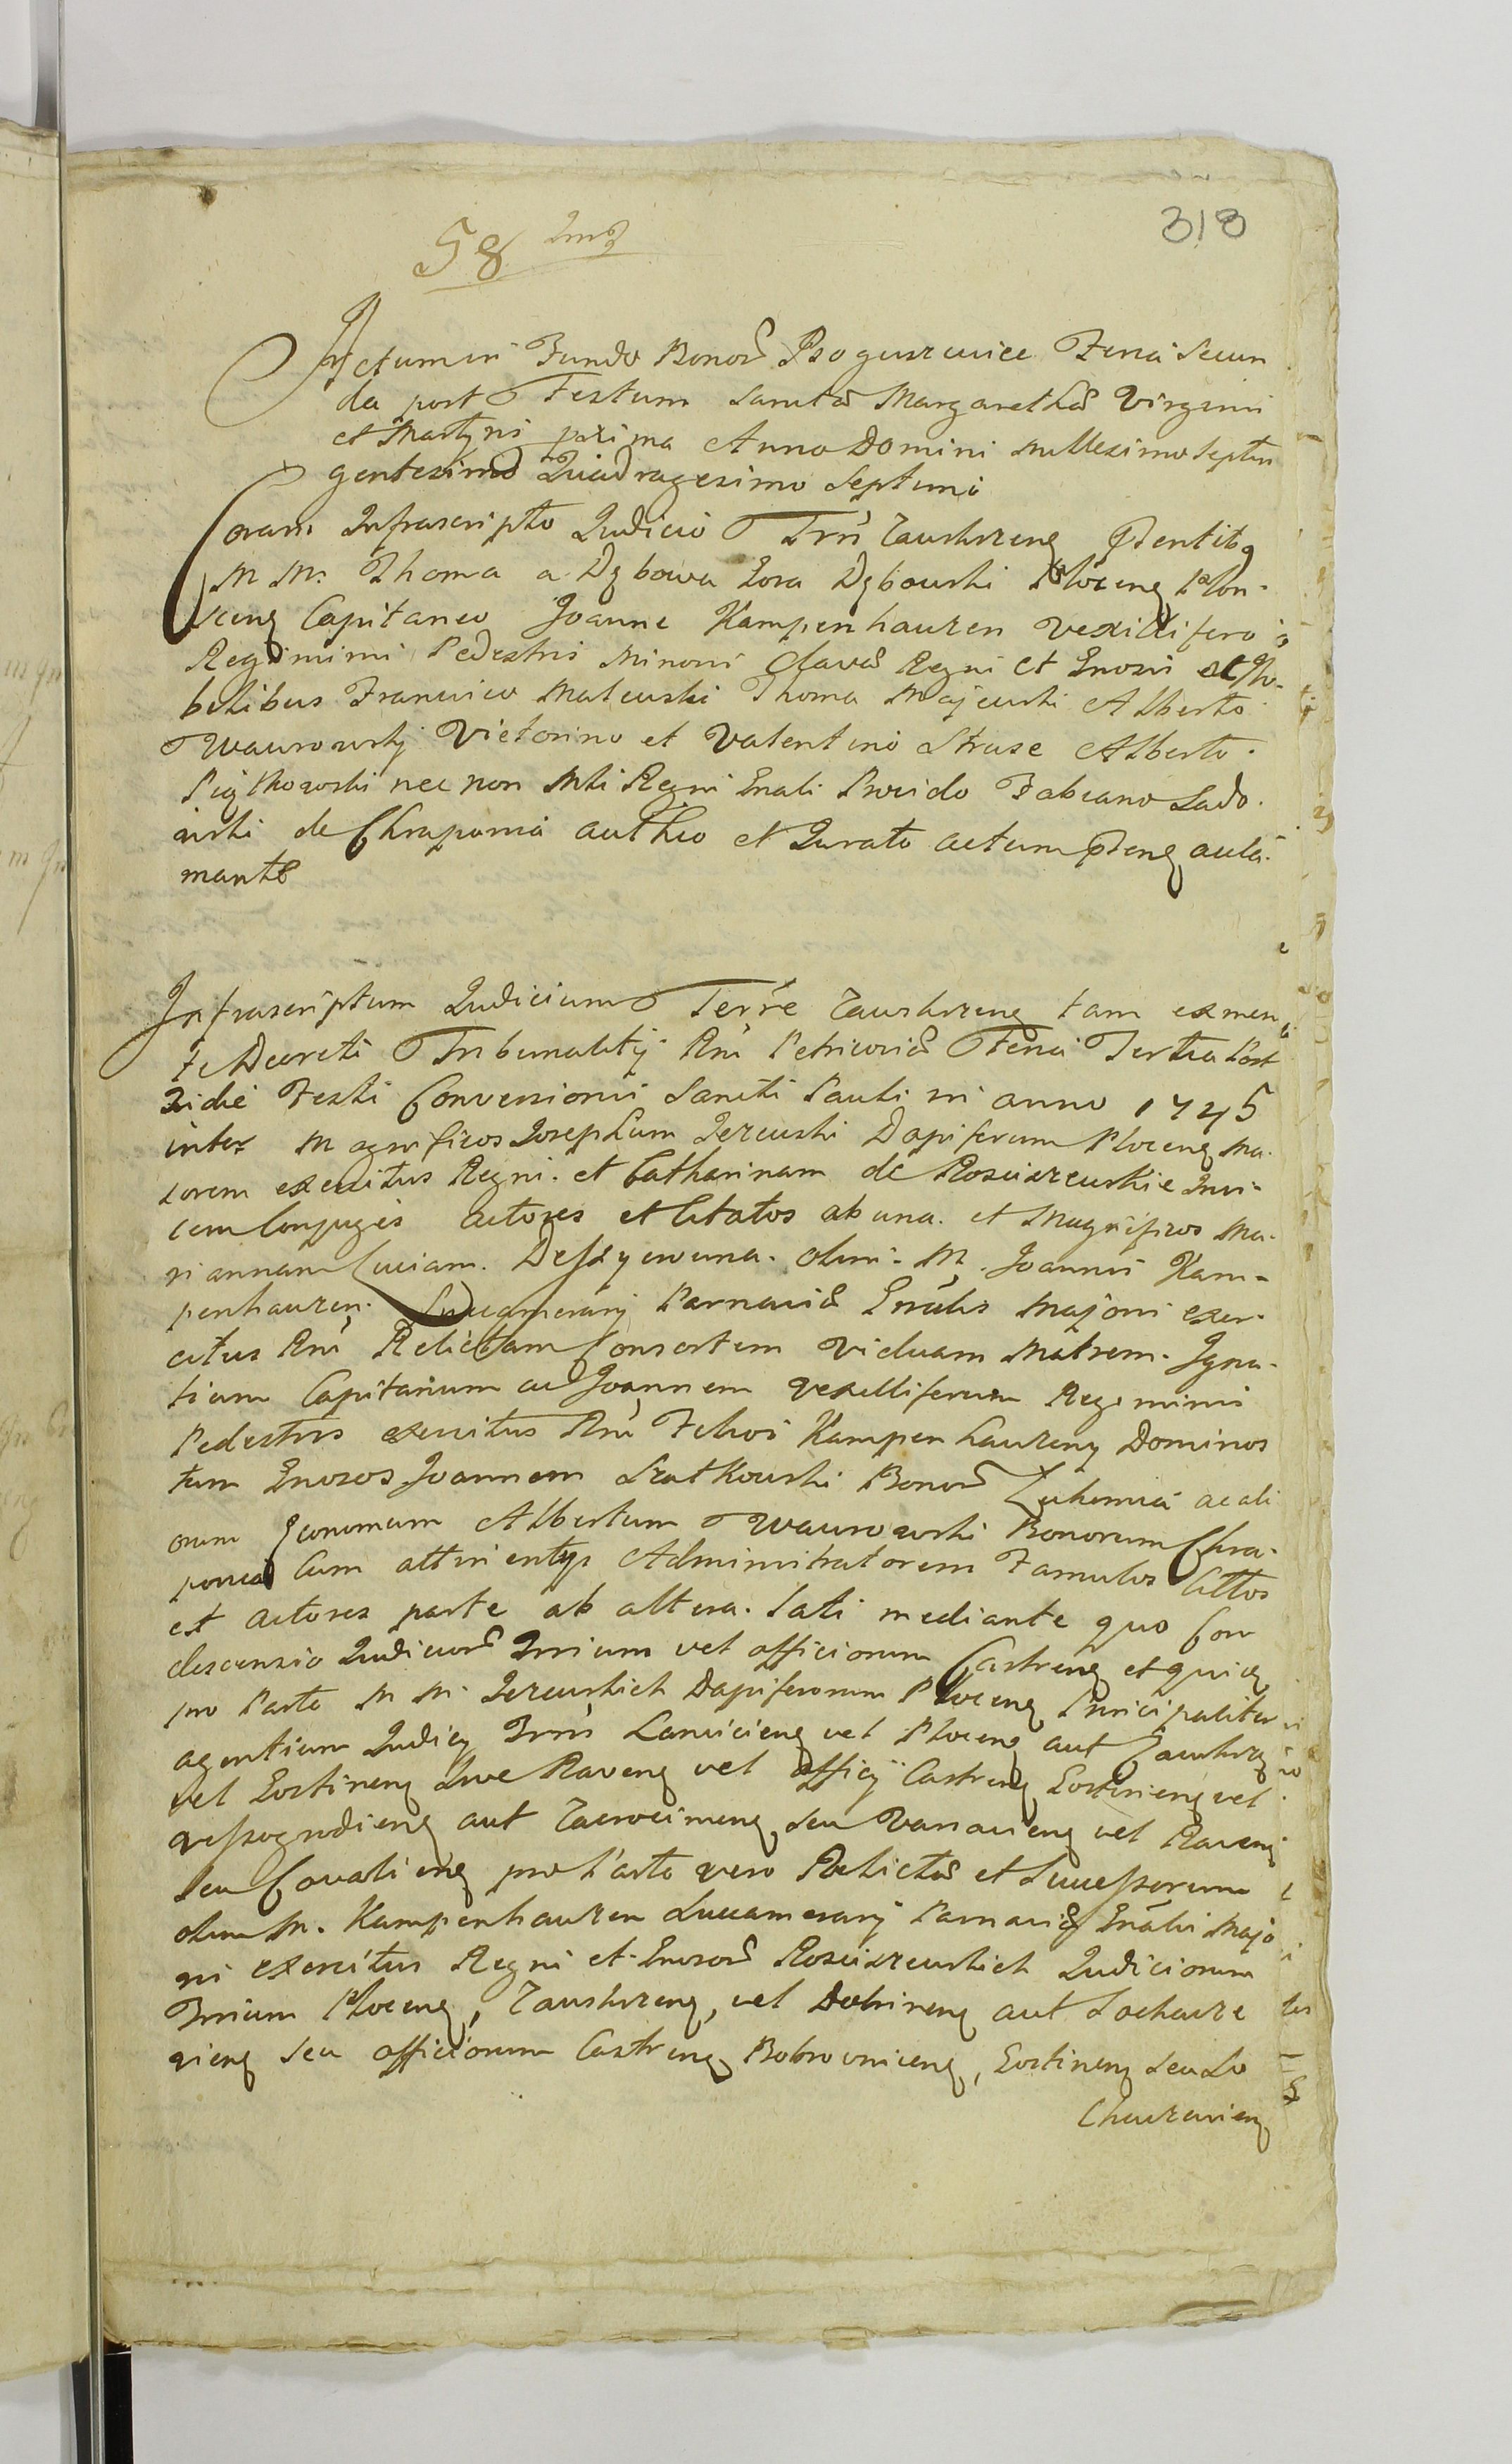 318
58
Actum in Fundo Bonor Boguszewice Feria Secun
da post Festum Sanctæ Margarethæ Virginis
et Martyris proxima Anno Domini Millesimo Septin
gentesimo Quadragesimo Septimo
Coram Infrascripto Judicio Trri Zawskrzeng Præntibq
M M. Thoma a Dębowa Gora Dębowski Plocenq Plon-
scenq Capitaneo Joanne Kampenhauzen Vexillifero
Regiminis Pedestris Minoris Clavæ Regni et Gnosis ac No-
bilibus Francisco Malewski Thoma Majewski Alberto
Wawrowski Victorino et Valentino Strusz Alberto
Piątkowski nec non Mli Regni Gnali Provido Fabiano Sado-
wski de Chraponia authco et Jurato actum Præng aula-
mante
Infrascriptum Judicium Terrre Zawskrzenq tam ex men
te Decreti Tribunalitij Rni Petricoviæ Feria Tertia Post
ridie Festi Conversionis Sancti Pauli in anno 1745
inter Magnificos Josephum Jezewski Dapiferum Plocenq Ma-
jorem exercitus Regni. et Catharinam de Rosciszewskie Invi-
cem Conjuges actores et Citatos ab una. et Magnificos Ma-
riannam Luciam. olim. M. Joannis Kam-
penhauzen Succamerarij Parnaviæ Gnalis Majoris exer-
citus Rni Relictam Consortem Viduam Matrem. Igna-
tium Capitaneum ac Joannem Vexilliferum Regiminis
Pedestris exercitus Rni Filios Kampenhauzeny Dominos
tum Gnosos Joannem Szatkowski Bonor ac ali
orum Œconomum Albertum Wawrowski Bonorum Chra-
ponia Cum attinentijs Administratorem Famulos Cittos
et actores parte ab altera. lati mediante quo Con
descensio Judicior Trrium vel officiorum Castrenq et quidq
pro Parte M M. Jezewskich Dapiferorum Plocenq Principaliter
agentium Judicij Trris vel Plocenq aut Zawskrzq
vel Gostinenq sive Ravenq vel officij Castrenq Gostinienq vel
Wyssogrodienq aut seu Varsavienq vel Ravenq
seu Covalienq pro Parte vero Relictæ et Successorum
olim M. Kampenhauzen Succamerarij Parnaviæ Gnalis Majo
ris exercitus Regni et Gnosor Rosciszewskich Judiciorum
Trrium Plocenq, Zawskrzenq, vel Dobrinenq aut Sochacze
vienq seu officiorum Castrenq Bobrovnicenq, Gostinenq seu So
Chaczevienq